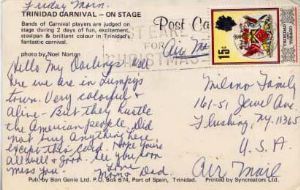 Friday Morn.
TRINIDAD CARNIVAL - ON STAGE
Bands of Carnival players are judged on
stage during 2 days of fun, excitement,
steelpan & brilliant colour in Trinidad's
fantastic carnival.
photo by Noel Norton
Hello My Darlings! Well
here we are in
town. Very colorful &
Alive. But they hustle
the American people. Did
not buy anything here
except this Card. Hope you're
all well & Good. See you soon
Miss you.
Mom & Dad
Pub: by Ben Genie Ltd. P.O. Box 674, Port of Spain, Trinidad.
Printed by Syncreators Ltd.
Post Card
FOR
Air Mail
15¢
Milano Family
161-51 Jewel Ave
Flushing NY. 11365
U.S.A
Air Mail